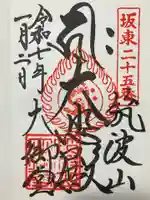 坂東二十五
筑波山
大悲殿
大御堂
令和七年
一月二日